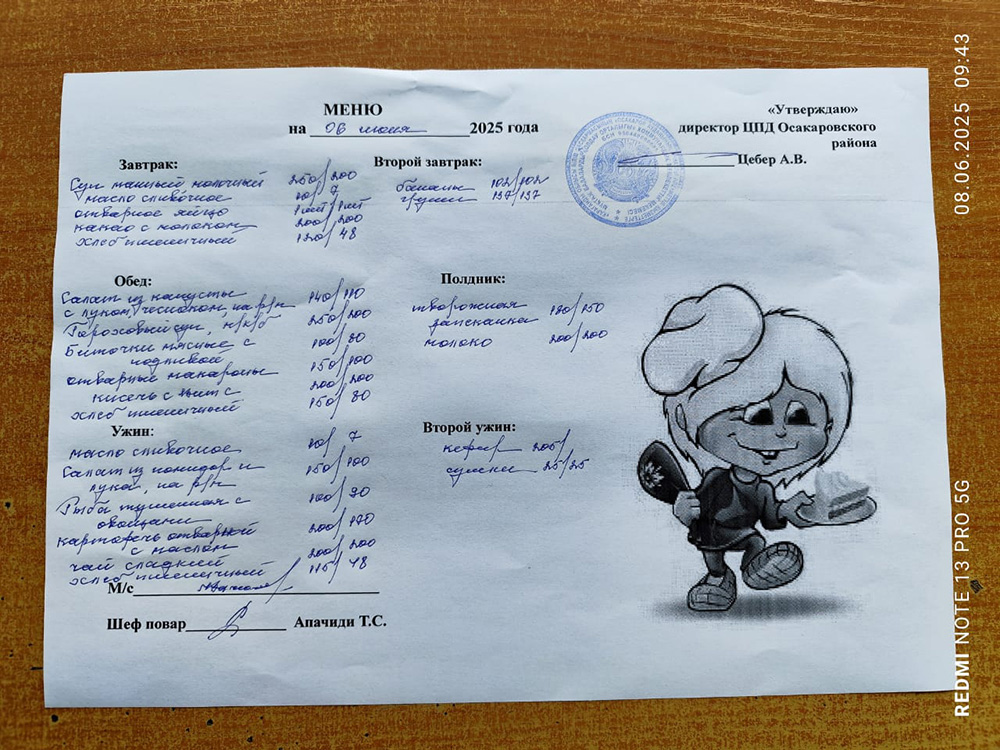 МЕНЮ
на 06 июня 2025 года
«Утверждаю»
директор ЦПД Осакаровского
района
Цебер А.В.
Завтрак:
Суп манный молочный 250/200
масло сливочное 10/7
отварное яйцо 1шт/1шт
какао с молоком 200/200
хлеб пшеничный 120/48
Второй завтрак:
бананы 102/102
груши 137/137
Обед:
Салат из капусты
с луком, чесноком, на р/м 140/110
Гороховый суп, н/к/б 250/200
Биточки мясные с 100/80
подливой
отварные макароны 150/100
кисель с вит с 200/200
хлеб пшеничный 150/80
Полдник:
творожная 180/150
запеканка
молоко 200/200
Ужин:
масло сливочное 10/7
Салат из помидор и 150/100
лука, на р/м
Рыба тушенная с 100/90
овощами
картофель отварной 200/170
с маслом
чай сладкий 200/200
хлеб пшеничный 115/48
Второй ужин:
кефир 205/
сушки 25/25
М/с
Шеф повар Апачиди Т.С.
REDMI NOTE 13 PRO 5G
08.06.2025 09:43